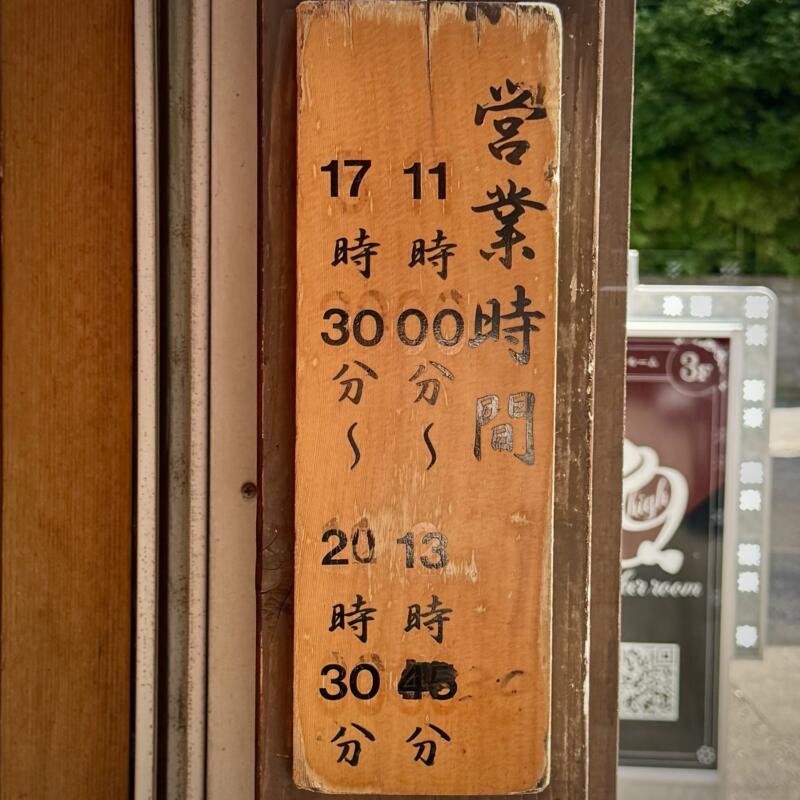 営業時間
11時00分〜13時45分
17時30分〜20時30分
3F
high
room